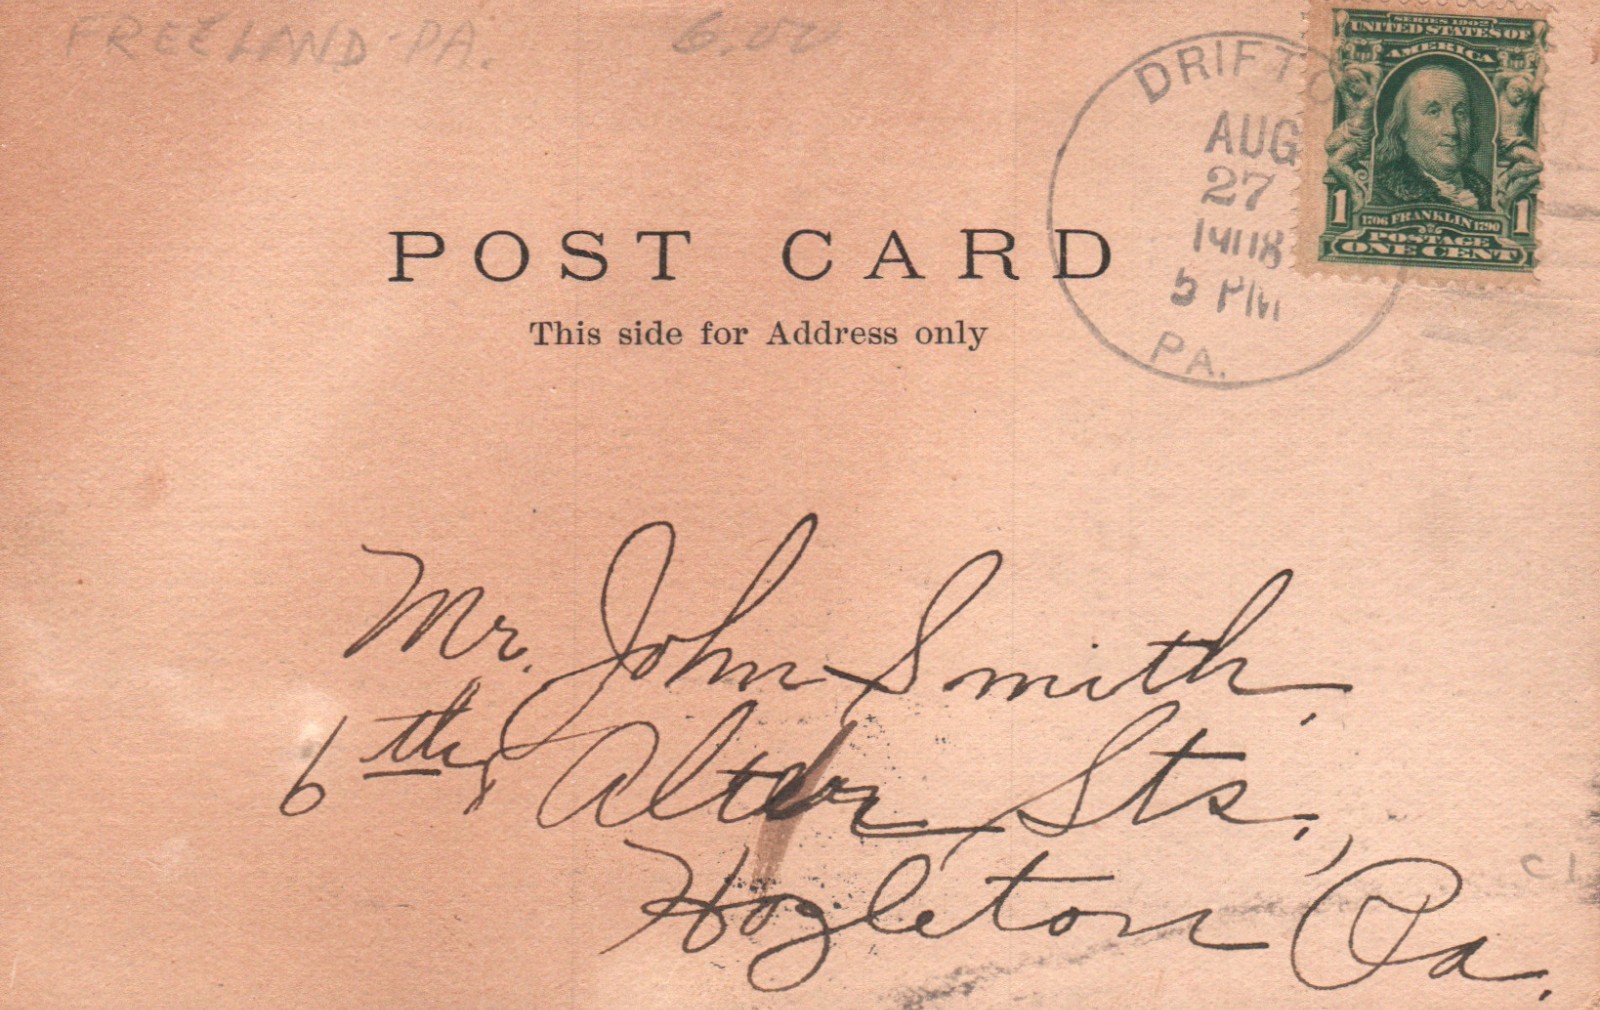 FREELAND PA. 6.00
SERIES 1902
UNITED STATES OF
AMERICA
1 1706 FRANKLIN 1790 1
POSTAGE
ONE CENT
DRIFTO
AUG
27
1908
5 PM
PA.
POST CARD
This side for Address only
Mr. John Smith,
6th & Alter Sts.,
Hazleton, Pa.